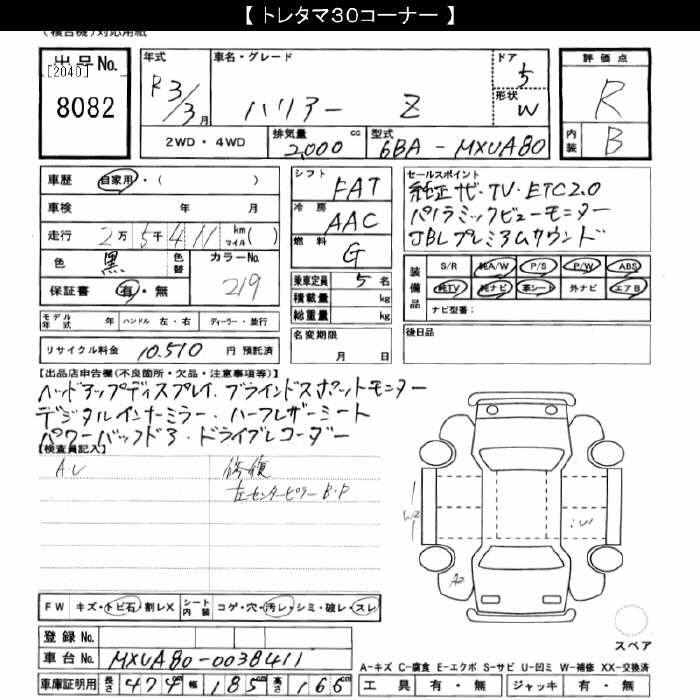 【 トレタマ30コーナー 】
(複合機)対応用紙
出品No.
[2040]
8082
年式
R3/3月
車名・グレード
ハリアー Z
ドア
5
形状
W
評価点
R
内装
B
2WD・4WD
排気量 cc
2,000
型式
6BA-MXUA80
車歴 自家用・( )
車検 年 月
走行 2万5千411 km マイル( )
色 黒 色替 カラーNo. 219
保証書 有・無
モデル年式 年 ハンドル 左・右 ディーラー・並行
リサイクル料金 10,510 円 預託済
シフト FAT
冷房 AAC
燃料 G
乗車定員 5名
積載量 kg
総重量 kg
名変期限
月 日
セールスポイント
純正ナビ・TV・ETC2.0
パノラミックビューモニター
JBLプレミアムサウンド
装備品
S/R 純A/W P/S P/W ABS
純TV 純ナビ 革シート 外ナビ エアB
ナビ型番:
後日品
【出品店申告欄(不良箇所・欠品・注意事項等)】
ヘッドアップディスプレイ、ブラインドスポットモニター
デジタルインナーミラー、ハーフレザーシート
パワーバックドア、ドライブレコーダー
【検査員記入】
AU
修復
左センターピラーB・P
W2
U1
A2
FW キズ・トビ石・割レX シート内装 コゲ・穴・汚レ・シミ・破レ・スレ
登録No.
車台No. MXUA80-0038411
車庫証明用 長さ 474cm 幅 185cm 高さ 166cm
スペア
A-キズ C-腐食 E-エクボ S-サビ U-凹ミ W-補修 XX-交換済
工具 有・無 ジャッキ 有・無